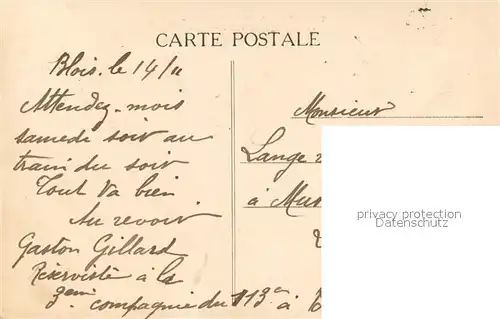 CARTE POSTALE
Blois. le 14/11
Attendez-mois
samedi soir au
train du soir
Tout va bien
Au revoir
Gaston Gillard
Réserviste à la
3eme compagnie du 113e à
Monsieur
Lange
à
privacy protection
Datenschutz